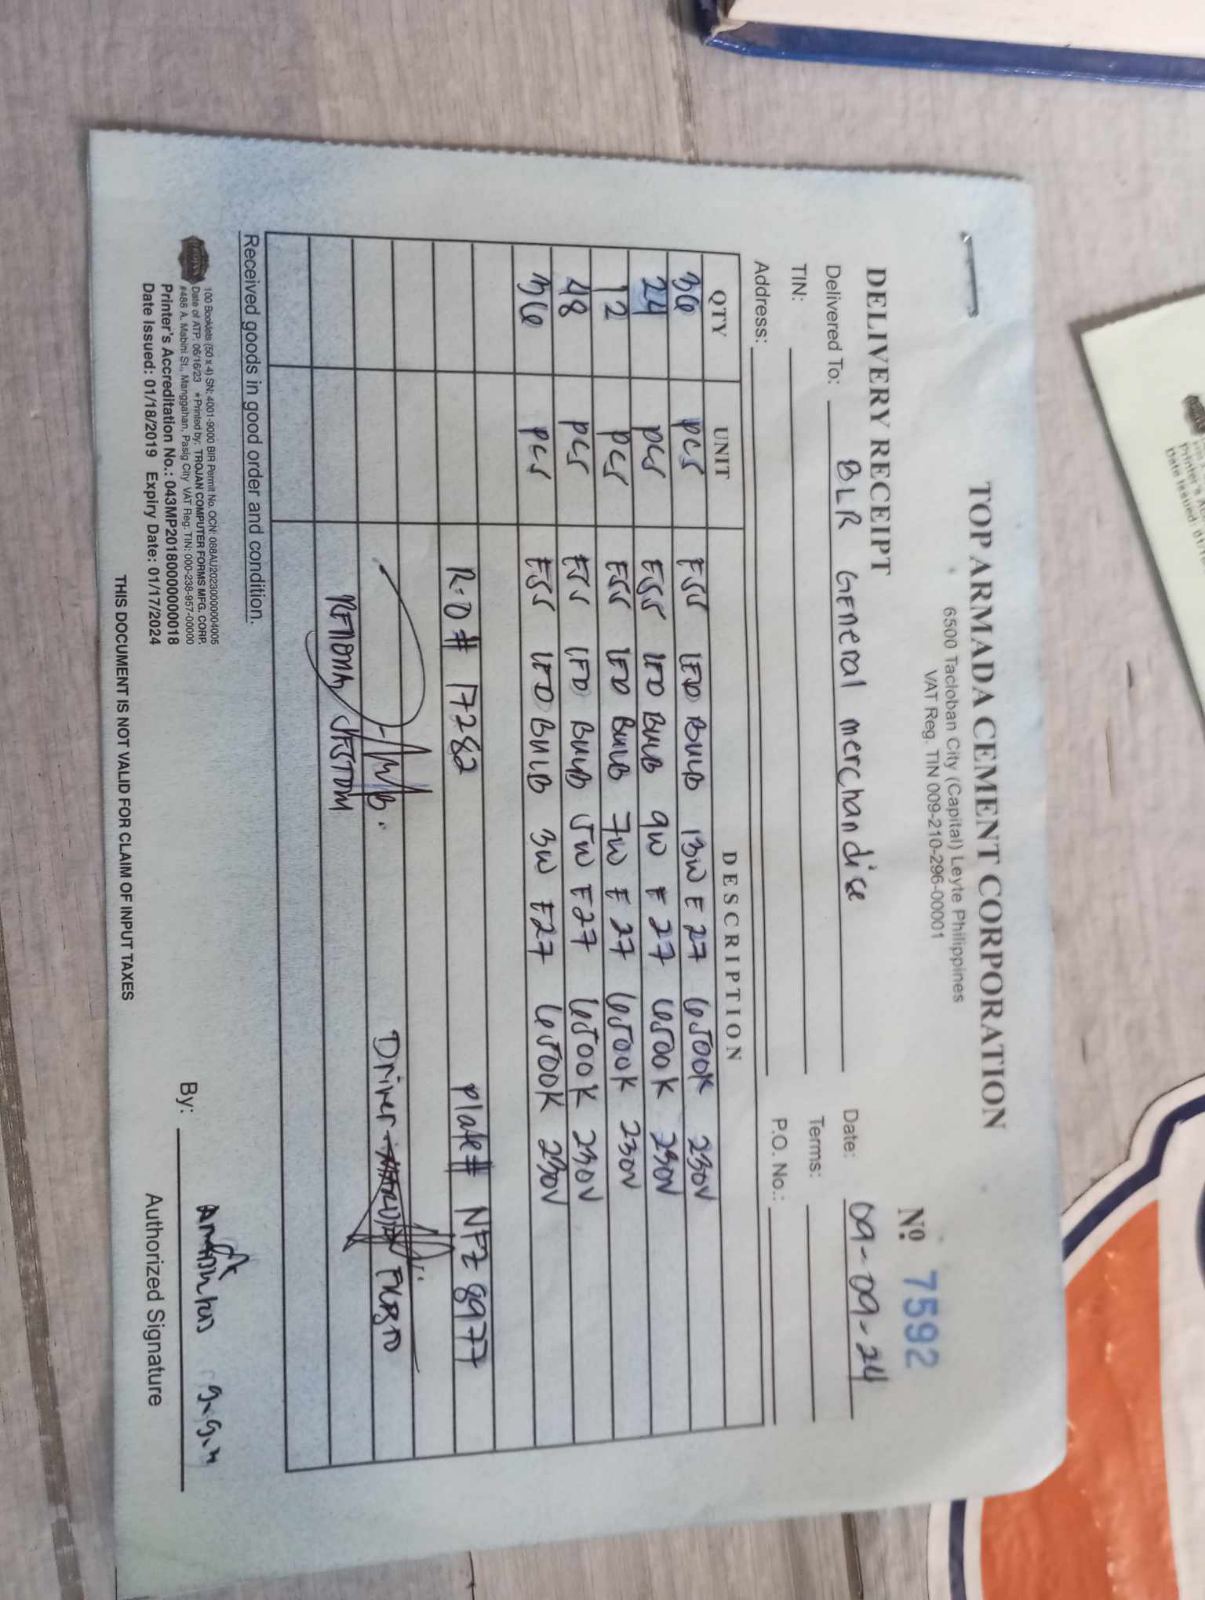 TOP ARMADA CEMENT CORPORATION
6500 Tacloban City (Capital) Leyte Philippines
VAT Reg. TIN 009-210-296-00001
DELIVERY RECEIPT
Nº 7592
Delivered To: BLR General merchandise
Date: 09-09-24
TIN:
Terms:
Address:
P.O. No.:
QTY UNIT DESCRIPTION
36 pcs ESS LED BULB 13W E27 6500K 230V
24 pcs ESS LED BULB 9W E27 6500K 230V
12 pcs ESS LED BULB 7W E27 6500K 230V
48 pcs ESS LED BULB 5W E27 6500K 230V
36 pcs ESS LED BULB 3W E27 6500K 230V
R.O# 17282 plate# NFZ 8977
Driver
Received goods in good order and condition.
100 Booklets (50 x 4) SN: 4001-9000 BIR Permit No. OCN: 088AU20230000004005
Date of ATP: 06/16/23 • Printed by: TROJAN COMPUTER FORMS MFG. CORP.
#486 A. Mabini St., Manggahan, Pasig City VAT Reg. TIN: 000-238-957-00000
Printer's Accreditation No.: 043MP20180000000018
Date Issued: 01/18/2019 Expiry Date: 01/17/2024
By:
Authorized Signature
THIS DOCUMENT IS NOT VALID FOR CLAIM OF INPUT TAXES
Printer's
Date Issued: 01/1